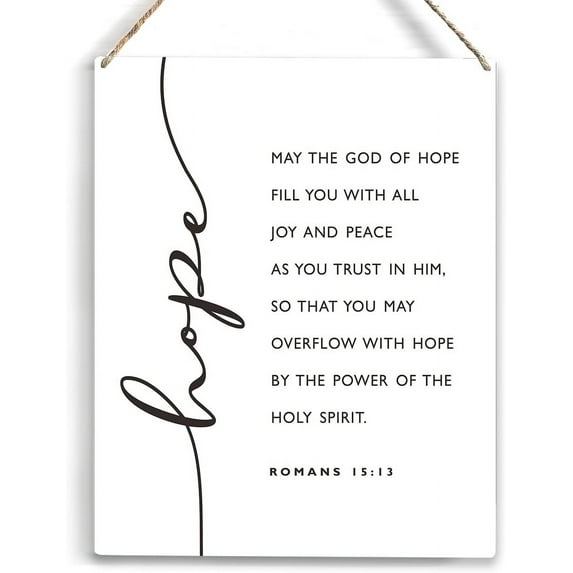 hope
MAY THE GOD OF HOPE
FILL YOU WITH ALL
JOY AND PEACE
AS YOU TRUST IN HIM,
SO THAT YOU MAY
OVERFLOW WITH HOPE
BY THE POWER OF THE
HOLY SPIRIT.
ROMANS 15:13